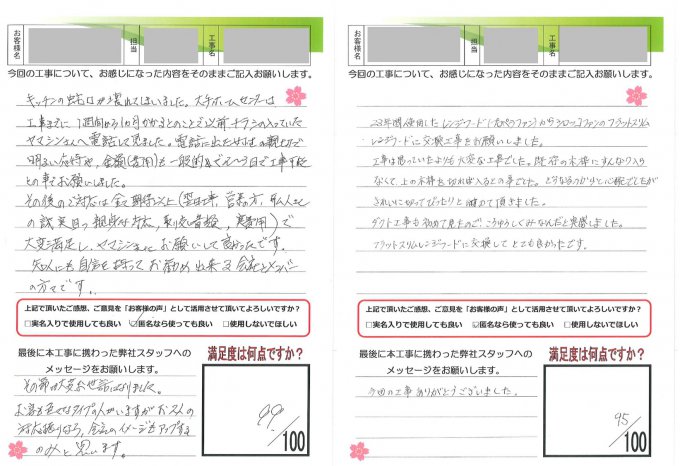 お客様名
担当
工事名
今回の工事について、お感じになった内容をそのままご記入お願いします。
キッチンの蛇口が壊れてしまいました。大手ホームセンターは
工事までに1週間から1ヶ月かかるとのことで以前チラシの入っていた
ヤマシンさんへ電話して見ました。電話に出た女性の親切で
明るい応対や、金額(費用)も一般的で
との事でお願いしました。
その後のご対応は全て期待以上
の誠実且つ親身な対応、費用)で
大変満足し、ヤマシンさんにお願いして良かったです。
知人にも自信を持ってお勧め出来る会社とメンバー
の方々です。
上記で頂いたご感想、ご意見を「お客様の声」として活用させて頂いてよろしいですか?
□実名入りで使用しても良い ☑匿名なら使っても良い □使用しないでほしい
最後に本工事に携わった弊社スタッフへの
メッセージをお願いします。
その節は大変お世話になりました。
タイプの人がいますがお2人の
会社のイメージもアップする
のみと思います。
満足度は何点ですか?
99/100
お客様名
担当
工事名
今回の工事について、お感じになった内容をそのままご記入お願いします。
23年間使用したレンジフード(ファン)からシロッコファンのフラットスリム
レンジフードに交換工事をお願いしました。
工事は思っていたよりも大変な工事でした。既存の木枠にすんなり入ら
なくて、上の木枠を切れば入るとの事でした。どうなるのかと心配でしたが
きれいに切ってぴったりと付けて頂きました。
ダクト工事も初めて見たのでこうゆうしくみなんだと実感しました。
フラットスリムレンジフードに交換してとても良かったです。
上記で頂いたご感想、ご意見を「お客様の声」として活用させて頂いてよろしいですか?
□実名入りで使用しても良い ☑匿名なら使っても良い □使用しないでほしい
最後に本工事に携わった弊社スタッフへの
メッセージをお願いします。
今回の工事ありがとうございました。
満足度は何点ですか?
95/100